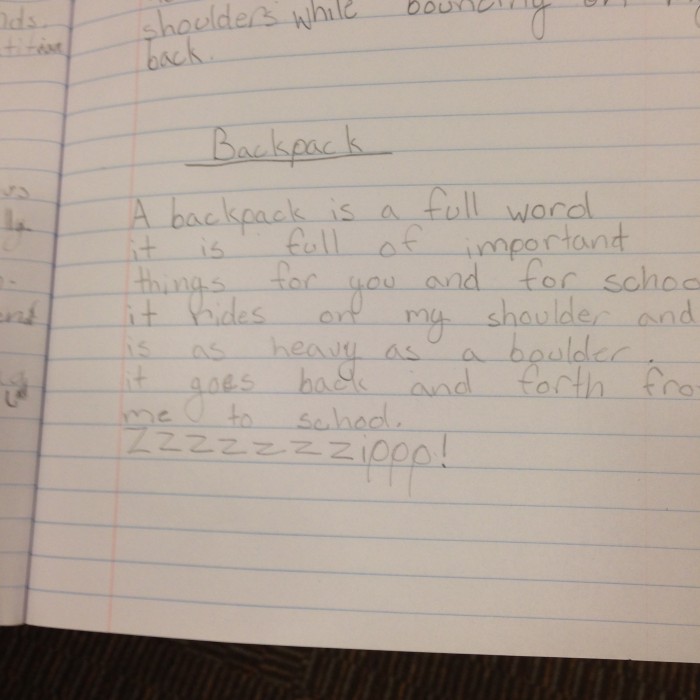 nds.
shoulders while bouncing on
back.
Backpack
A backpack is a full word
it is full of important
things for you and for schoo
it rides on my shoulder and
is as heavy as a boulder.
it goes back and forth fro
me to school.
Zzzzzzzzippp!